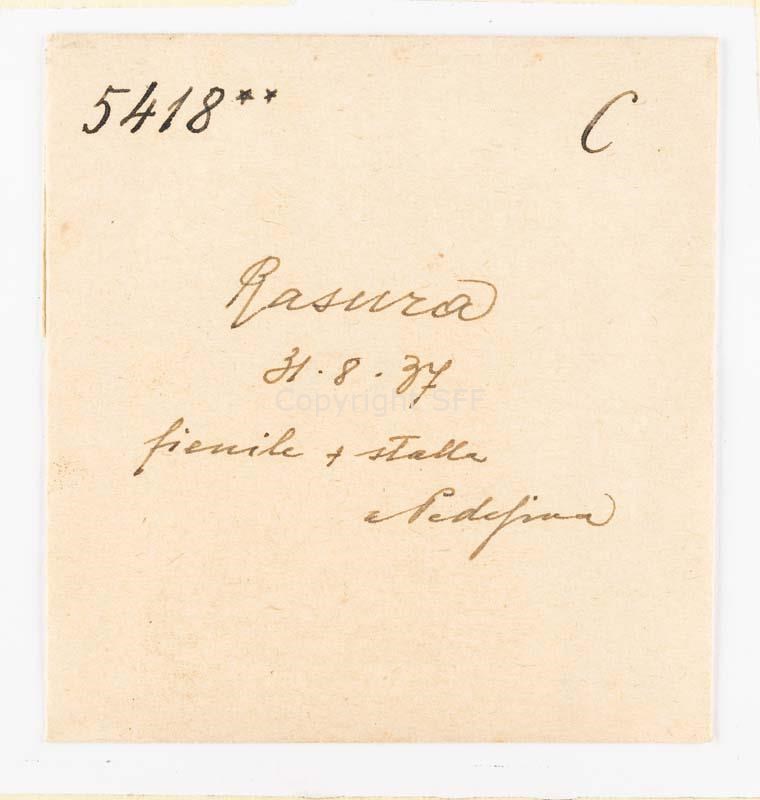 5418** C
Rasura
31.8.37
Copyright SFF
fienile + stalla
a Pedesina